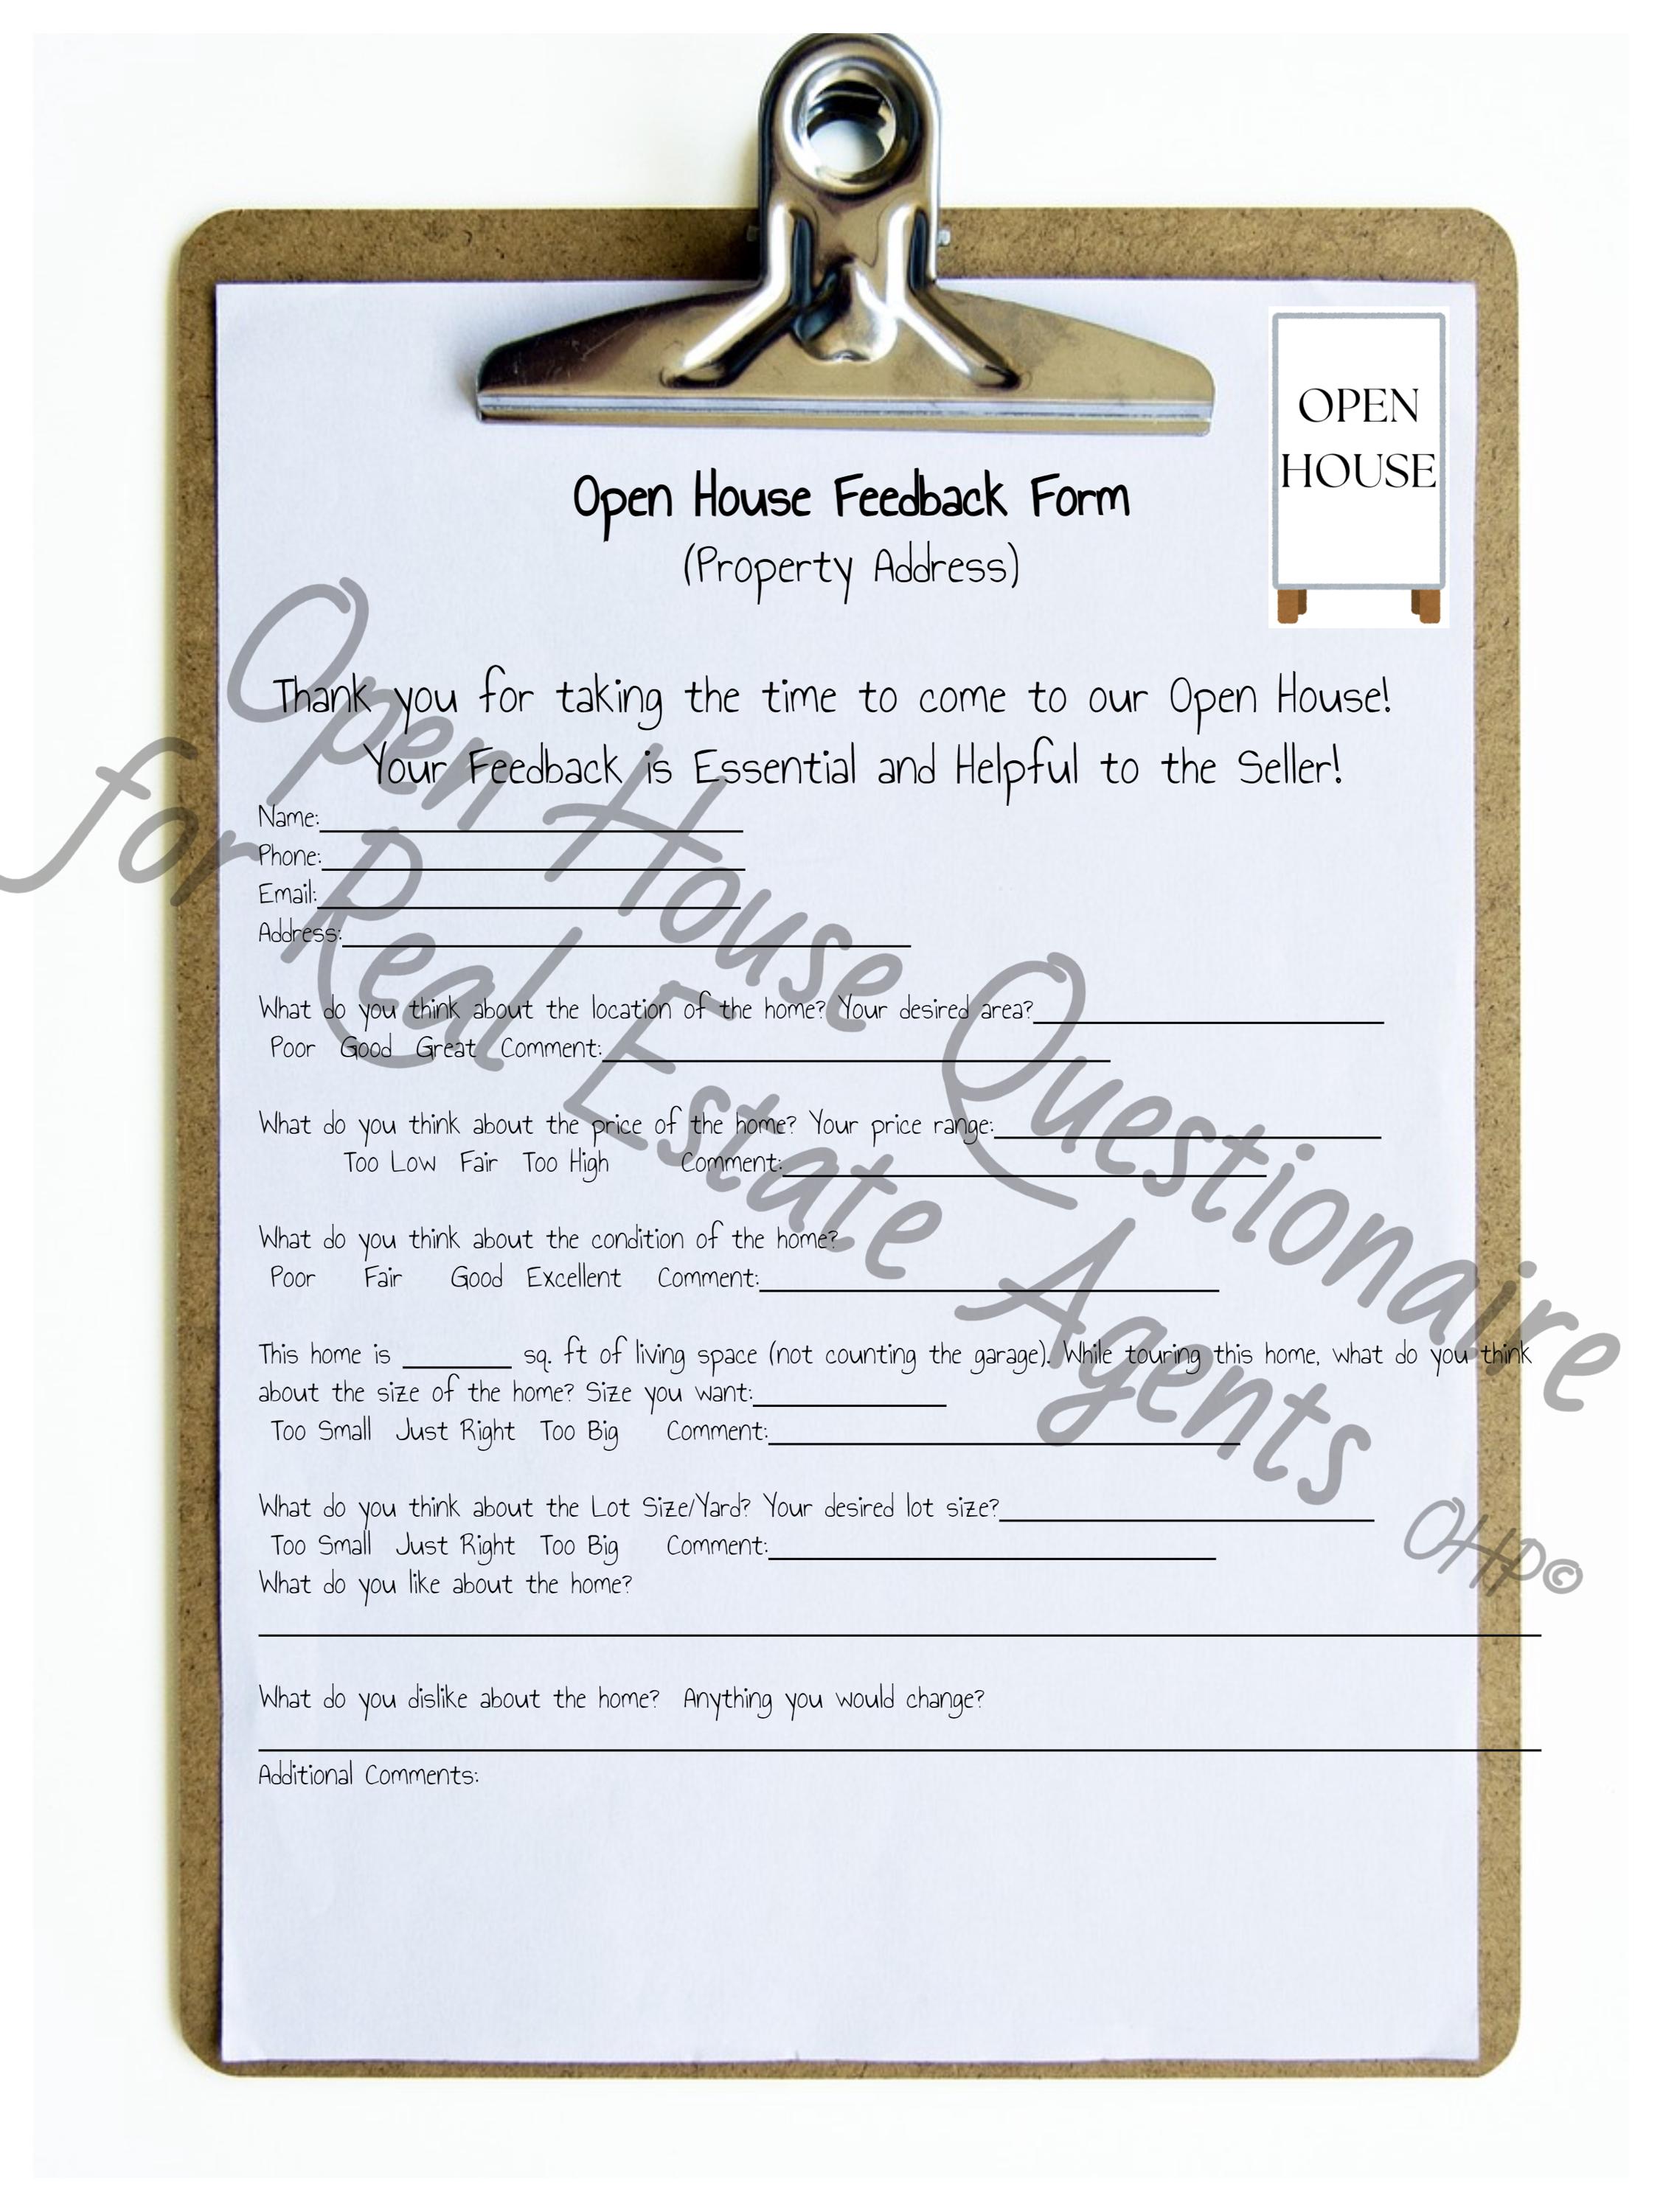 OPEN
HOUSE
Open House Feedback Form
(Property Address)
Thank you for taking the time to come to our Open House!
Your Feedback is Essential and Helpful to the Seller!
Name:
Phone:
Email:
Address:
What do you think about the location of the home? Your desired area?
Poor Good Great Comment:
What do you think about the price of the home? Your price range:
Too Low Fair Too High Comment:
What do you think about the condition of the home?
Poor Fair Good Excellent Comment:
This home is ________ sq. ft of living space (not counting the garage). While touring this home, what do you think
about the size of the home? Size you want:
Too Small Just Right Too Big Comment:
What do you think about the Lot Size/Yard? Your desired lot size?
Too Small Just Right Too Big Comment:
What do you like about the home?
What do you dislike about the home? Anything you would change?
Additional Comments:
Open House Questionaire
for Real Estate Agents
OHP©